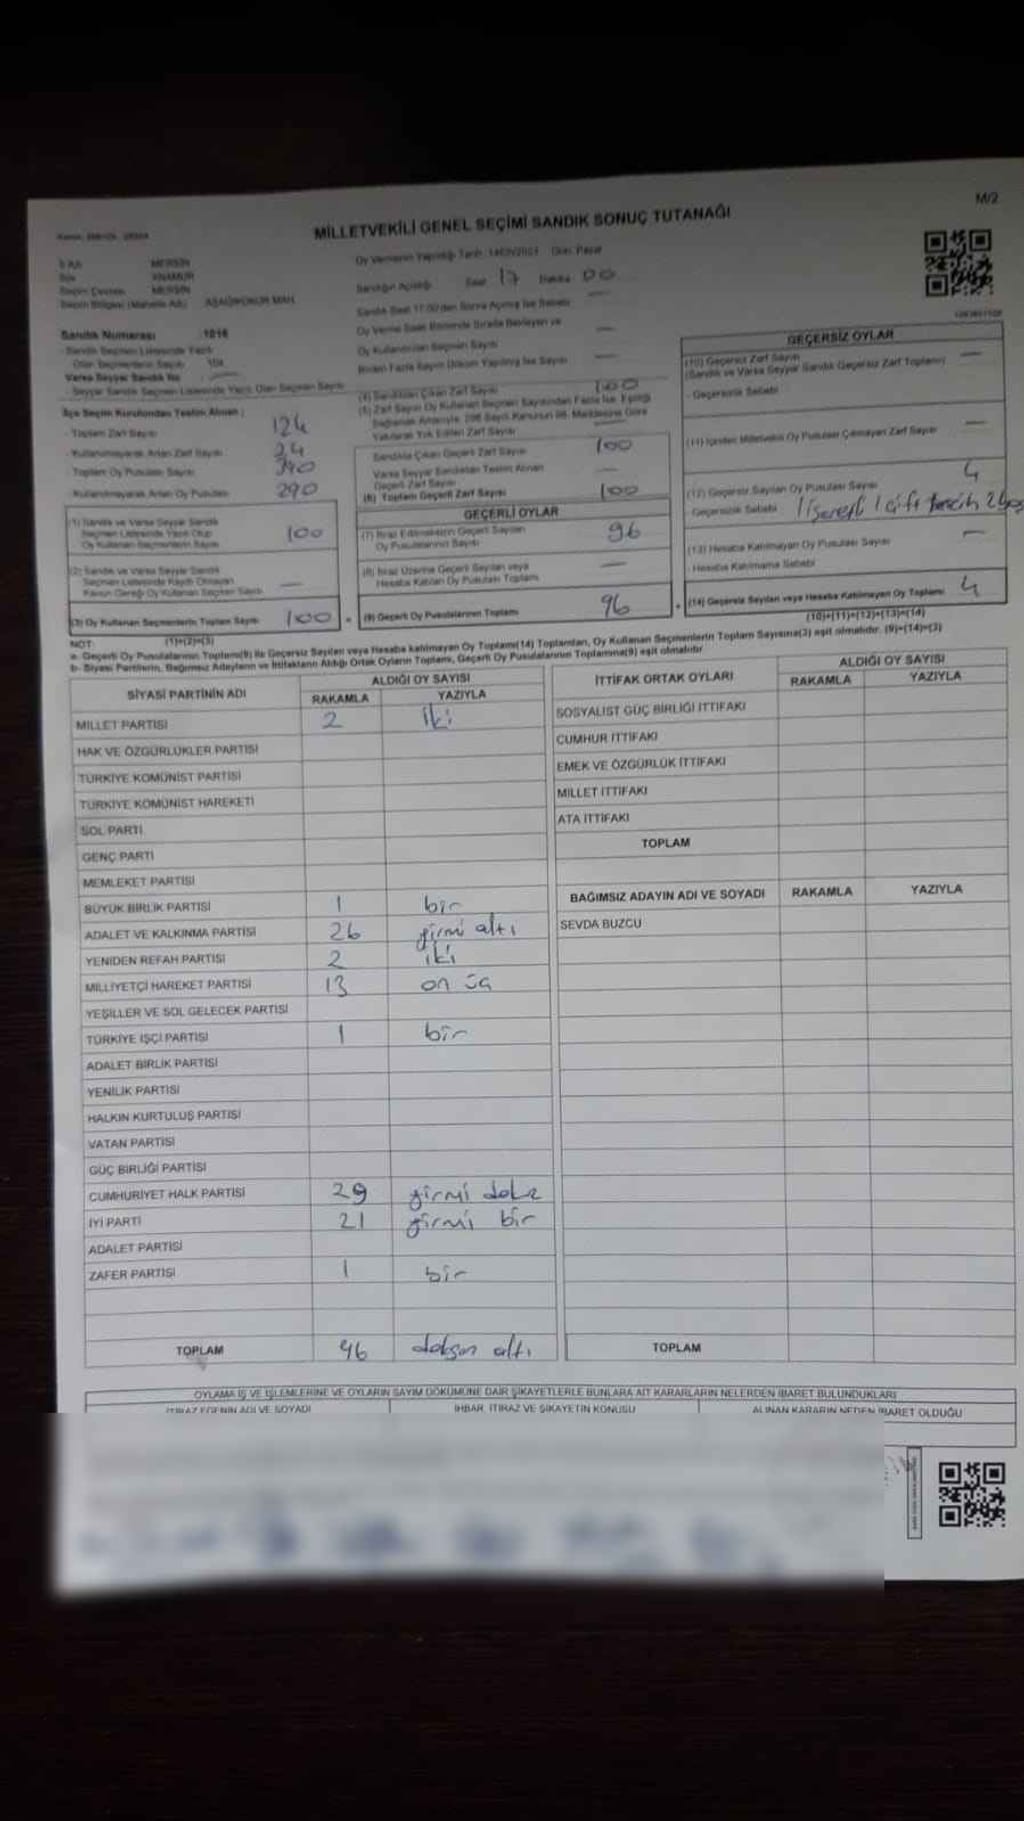 M/2
MİLLETVEKİLİ GENEL SEÇİMİ SANDIK SONUÇ TUTANAĞI
İl Adı MERSİN
ANAMUR
Seçim Çevresi MERSİN
Seçim Bölgesi (Mahalle Adı)
Oy Vermenin Yapıldığı Tarih 14/05/2023 Gün Pazar
Sandığın Açıldığı Saat 17 Dakika 00
Sandık Saat 17:00'den Sonra Açılmış İse Sebebi —
Oy Verme Saati Bitiminde Sırada Bekleyen ve
Oy Kullandırılan Seçmen Sayısı —
Birden Fazla Sayım Döküm Yapılmış İse Sayısı —
Sandık Numarası 1016
Sandık Seçmen Listesinde Yazılı
Olan Seçmenlerin Sayısı
Varsa Seyyar Sandık No —
Seyyar Sandık Seçmen Listesinde Yazılı Olan Seçmen Sayısı
İlçe Seçim Kurulundan Teslim Alınan :
Toplam Zarf Sayısı 124
Kullanılmayarak Artan Zarf Sayısı 24
Toplam Oy Pusulası Sayısı 390
Kullanılmayarak Artan Oy Pusulası 290
(1) Sandık ve Varsa Seyyar Sandık
Seçmen Listesinde Yazılı Olup
Oy Kullanan Seçmenlerin Sayısı 100
(2) Sandık ve Varsa Seyyar Sandık
Seçmen Listesinde Kayıtlı Olmayan
Kanun Gereği Oy Kullanan Seçmen Sayısı —
(3) Oy Kullanan Seçmenlerin Toplam Sayısı 100
(1)+(2)=(3)
(4) Sandıktan Çıkan Zarf Sayısı 100
(5) Zarf Sayısı Oy Kullanan Seçmen Sayısından Fazla İse, Eşitliği
Sağlamak Amacıyla, 298 Sayılı Kanunun 98. Maddesine Göre
Yakılarak Yok Edilen Zarf Sayısı —
Sandıkta Çıkan Geçerli Zarf Sayısı 100
Varsa Seyyar Sandıktan Teslim Alınan
Geçerli Zarf Sayısı —
(6) Toplam Geçerli Zarf Sayısı 100
GEÇERLİ OYLAR
(7) İtiraz Edilmeksizin Geçerli Sayılan
Oy Pusulalarının Sayısı 96
(8) İtiraz Üzerine Geçerli Sayılan veya
Hesaba Katılan Oy Pusulası Toplamı —
(9) Geçerli Oy Pusulalarının Toplamı 96
GEÇERSİZ OYLAR
(10) Geçersiz Zarf Sayısı —
(Sandık ve Varsa Seyyar Sandık Geçersiz Zarf Toplamı)
Geçersizlik Sebebi
(11) İçinden Milletvekili Oy Pusulası Çıkmayan Zarf Sayısı —
(12) Geçersiz Sayılan Oy Pusulası Sayısı 4
Geçersizlik Sebebi 1 işaretli 1 çift tercih 2 boş
(13) Hesaba Katılmayan Oy Pusulası Sayısı —
Hesaba Katılmama Sebebi
(14) Geçersiz Sayılan veya Hesaba Katılmayan Oy Toplamı 4
(10)+(11)+(12)+(13)=(14)
NOT:
a- Geçerli Oy Pusulalarının Toplamı(9) ile Geçersiz Sayılan veya Hesaba katılmayan Oy Toplamı(14) Toplamdan, Oy Kullanan Seçmenlerin Toplam Sayısına(3) eşit olmalıdır. (9)+(14)=(3)
b- Siyasi Partilerin, Bağımsız Adayların ve İttifakların Aldığı Ortak Oyların Toplamı, Geçerli Oy Pusulalarının Toplamına(9) eşit olmalıdır
SİYASİ PARTİNİN ADI ALDIĞI OY SAYISI
RAKAMLA YAZIYLA
MİLLET PARTİSİ 2 iki
HAK VE ÖZGÜRLÜKLER PARTİSİ
TÜRKİYE KOMÜNİST PARTİSİ
TÜRKİYE KOMÜNİST HAREKETİ
SOL PARTİ
GENÇ PARTİ
MEMLEKET PARTİSİ
BÜYÜK BİRLİK PARTİSİ 1 bir
ADALET VE KALKINMA PARTİSİ 26 yirmi altı
YENİDEN REFAH PARTİSİ 2 iki
MİLLİYETÇİ HAREKET PARTİSİ 13 on üç
YEŞİLLER VE SOL GELECEK PARTİSİ
TÜRKİYE İŞÇİ PARTİSİ 1 bir
ADALET BİRLİK PARTİSİ
YENİLİK PARTİSİ
HALKIN KURTULUŞ PARTİSİ
VATAN PARTİSİ
GÜÇ BİRLİĞİ PARTİSİ
CUMHURİYET HALK PARTİSİ 29 yirmi dokz
İYİ PARTİ 21 yirmi bir
ADALET PARTİSİ
ZAFER PARTİSİ 1 bir
TOPLAM 96 doksan altı
İTTİFAK ORTAK OYLARI ALDIĞI OY SAYISI
RAKAMLA YAZIYLA
SOSYALİST GÜÇ BİRLİĞİ İTTİFAKI
CUMHUR İTTİFAKI
EMEK VE ÖZGÜRLÜK İTTİFAKI
MİLLET İTTİFAKI
ATA İTTİFAKI
TOPLAM
BAĞIMSIZ ADAYIN ADI VE SOYADI RAKAMLA YAZIYLA
SEVDA BUZCU
TOPLAM
OYLAMA İŞ VE İŞLEMLERİNE VE OYLARIN SAYIM DÖKÜMÜNE DAİR ŞİKAYETLERLE BUNLARA AİT KARARLARIN NELERDEN İBARET BULUNDUKLARI
İTİRAZ EDENİN ADI VE SOYADI İHBAR, İTİRAZ VE ŞİKAYETİN KONUSU ALINAN KARARIN NEDEN İBARET OLDUĞU